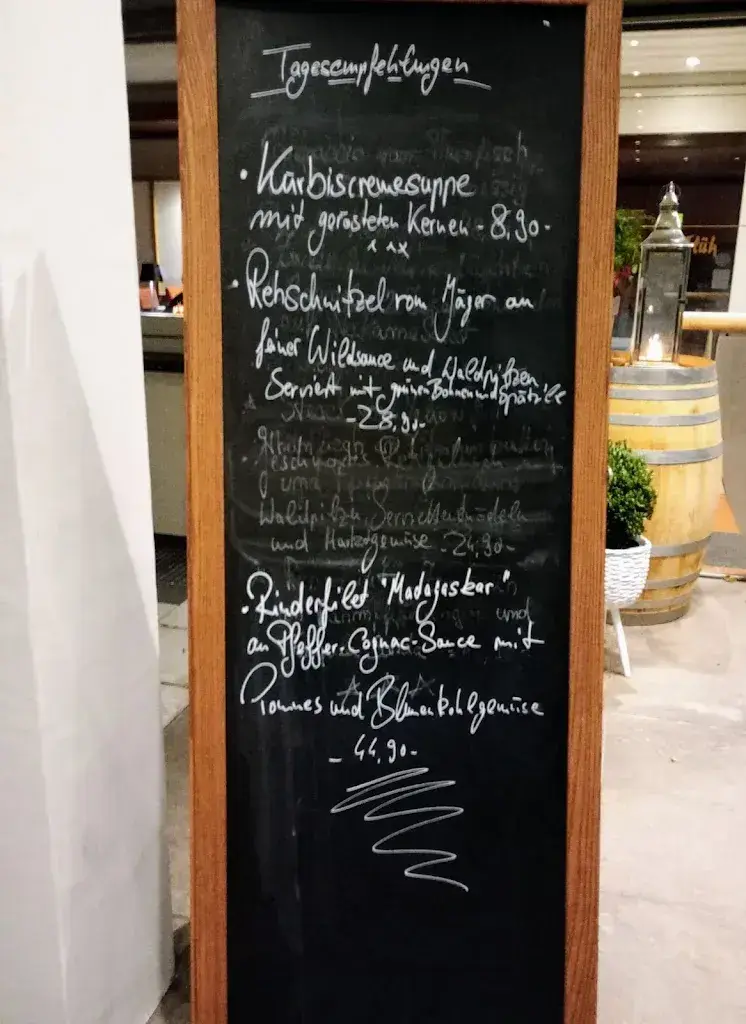 Tagesempfehlungen
• Kürbiscremesuppe
mit gerösteten Kernen - 8,90-
• Rehschnitzel vom Jäger an
feiner Wildsauce und Waldpilzen
Serviert mit grünen Bohnen und Spätzle
-28,90-
Waldpilzen, Serviettenknödeln
und Marktgemüse - 24,90-
• Rinderfilet "Madagaskar"
an Pfeffer-Cognac-Sauce mit
Pommes und Blumenkohlgemüse
- 44,90-